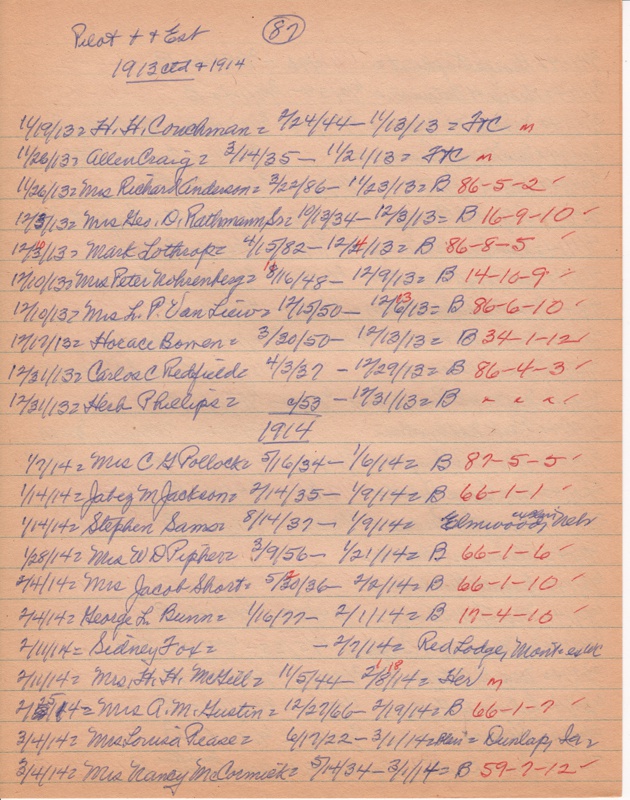 Pilot + + Est
87
1913 ctd + 1914
11/19/13 = H. H. Couchman = 2/24/44 — 11/13/13 = m
11/26/13 = Allen Craig = 3/14/35 — 11/21/13 = m
11/26/13 = Mrs Richard Anderson = 3/22/86 — 11/23/13 = B 86-5-2 ✓
12/3/13 = Mrs Geo. D. Rathmann Sr = 10/13/34 — 12/3/13 = B 16-9-10 ✓
12/10/13 = Mark Lothrop = 4/15/82 — 12/4/13 = B 86-8-5 ✓
12/10/13 = Mrs Peter Wohrenberg = /16/48 — 12/9/13 = B 14-10-9 ✓
12/10/13 = Mrs L. P. Van Liew = 12/15/50 — 12/6/13 = B 86-6-10 ✓
12/17/13 = Horace Bowen = 3/30/50 — 12/13/13 = B 34-1-12 ✓
12/31/13 = Carlos C Redfield = 4/3/37 — 12/29/13 = B 86-4-3 ✓
12/31/13 = Herb Phillips = c/53 — 12/31/13 = B
1914
1/7/14 = Mrs C G Pollock = 5/16/34 — 1/6/14 = B 87-5-5 ✓
1/14/14 = Jabez M Jackson = 2/14/35 — 1/9/14 = B 66-1-1 ✓
1/14/14 = Stephen Sams = 8/14/37 — 1/9/14 = Elmwood, Nebr
1/28/14 = Mrs W D Pipher = 3/9/56 — 1/21/14 = B 66-1-6 ✓
2/4/14 = Mrs Jacob Short = 5/30/36 — 2/2/14 = B 66-1-10 ✓
2/4/14 = George L. Bunn = 1/16/77 — 2/1/14 = B 17-4-10 ✓
2/11/14 = Sidney Fox = — 2/7/14 = Red Lodge, Mont
2/11/14 = Mrs. H. H. McGill = 11/5/44 — 2/8/14 = Her m
2/25/14 = Mrs A. M. Gustin = 12/27/66 — 2/19/14 = B 66-1-7 ✓
3/4/14 = Mrs Louisa Pease = 6/17/22 — 3/1/14 = Dunlap, Ia =
3/4/14 = Mrs Nancy McCormick = 5/14/34 — 3/1/14 = B 59-7-12 ✓